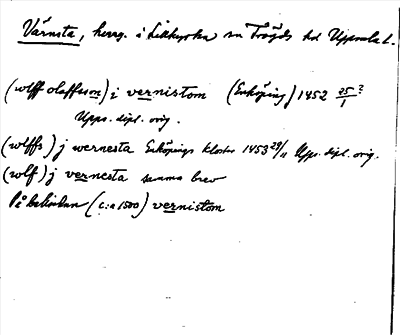 Värnsta, herrg. i Litslunda sn Trögds hd Uppsala l.
(wlff olaffson) i vernistom (Enköping) 1452 25/1 ?
Upps. dipl. orig.
(wlffs) j wernesta Enköpings kloster 1453 29/11 Upps. dipl. orig.
(wlf) j vernesta samma brev
På baksidan (c:a 1500) vernistom